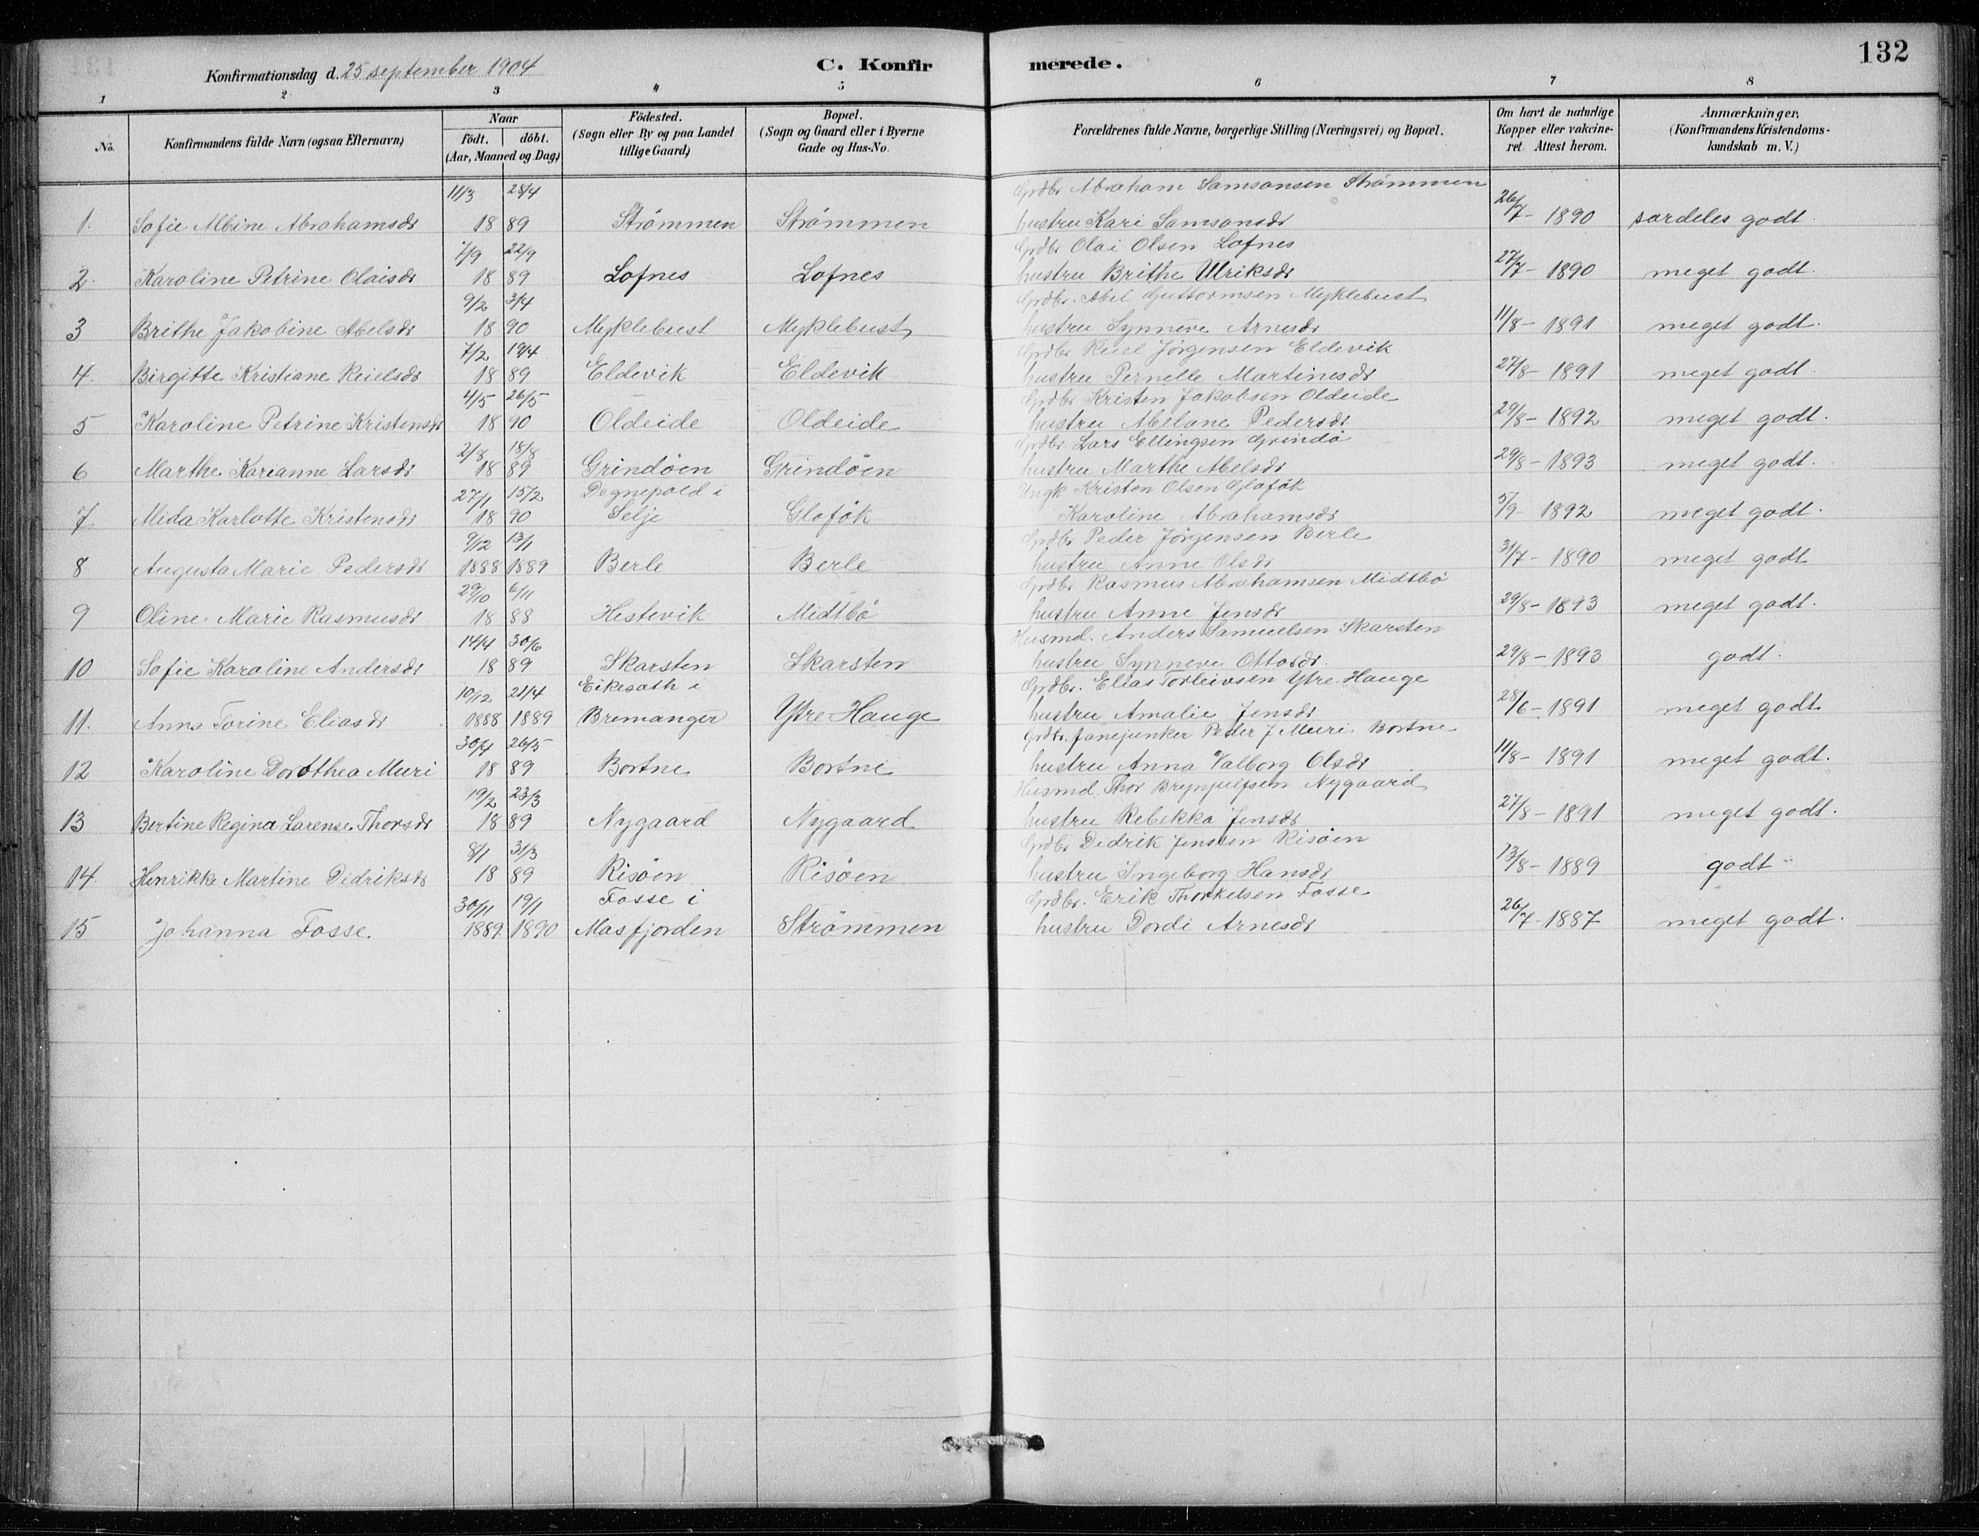 132
Konfirmationsdag d. 25 september 1904
C. Konfirmerede.
1 2 3 4 5 6 7 8
No. | Konfirmandens fulde Navn (ogsaa Efternavn) | Naar födt. döbt. (Aar, Maaned og Dag) | Födested. (Sogn eller By og paa Landet tillige Gaard) | Bopæl. (Sogn og Gaard eller i Byerne Gade og Hus-No. | Forældrenes fulde Navne, borgerlige Stilling (Næringsvei) og Bopæl. | Om havt de naturlige Kopper eller vakcineret. Attest herom. | Anmærkninger. (Konfirmandens Kristendomskundskab m. V.)
11/3 28/4 Grdbr. Abraham Samsonsen Strømmen
1. Sofie Albine Abrahamsdr 18 89 Strømmen Strømmen hustru Kari Samsonsdr 26/7 - 1890 særdeles godt.
1/9 22/9 Grdbr. Olai Olsen Lofnes
2. Karoline Petrine Olaisdr 18 89 Lofnes Lofnes hustru Brithe Ulriksdr 27/7 - 1890 meget godt.
9/2 3/4 Grdbr. Abel Guttormsen Myklebust
3 Brithe Jakobine Abelsdr 18 90 Myklebust Myklebust hustru Synneve Arnesdr 11/8 - 1891 meget godt.
7/2 19/4 Grdbr. Reiel Jørgensen Eldevik
4. Birgitte Kristiane Reielsdr 18 89 Eldevik Eldevik hustru Pernelle Martinesdr 27/8 - 1891 meget godt.
4/5 26/5 Grdbr Kristen Jakobsen Oldeide
5 Karoline Petrine Kristensdr 18 90 Oldeide Oldeide hustru Abelone Pedersdr 29/8 - 1892 meget godt.
2/8 18/8 Grdbr Lars Ellingsen Grindö
6 Marthe Karianne Larsdr 18 89 Grindöen Grindöen hustru Marthe Abelsdr 29/8 - 1893 meget godt.
27/1 15/2 Degnepold i Ungk Kristen Olsen Glofök
7 Mida Karlotte Kristensdr 18 90 Selje Glofök Karoline Abrahamsdr 5/9 - 1892 meget godt.
9/12 13/1 Grdbr Peder Jørgensen Berle
8 Augusta Marie Pedersdr 1888 1889 Berle Berle hustru Anne Olsdr 31/7 - 1890 meget godt
29/10 6/11 Grdbr Rasmus Abrahamsen Midtbö
9 Oline Marie Rasmusdr 18 88 Hestevik Midtbö hustru Anne Jensdr 29/8 - 1893 meget godt.
14/4 30/6 Husmd. Anders Samuelsen Skarsten
10 Sofie Karoline Andersdr 18 89 Skarsten Skarsten hustru Synneve Ottosdr. 29/8 - 1893 godt.
10/12 21/4 Eikesæth i Grdbr. Elias Torleivsen Ytre Hauge
11. Anna Torine Eliasdr 1888 1889 Bremanger Ytre Hauge hustru Amalie Jensdr 28/6 - 1891 meget godt
30/4 26/5 Grdbr. Fanejunker Peder J Muri. Bortne
12 Karoline Dorothea Muri 18 89 Bortne Bortne hustru Anna Valborg Olsdr 11/8 - 1891 meget godt.
19/2 23/3 Husmd. Thor Brynjulfsen Nygaard
13 Bertine Regina Larense Thorsdr 18 89 Nygaard Nygaard hustru Rebekka Jensdr 27/8 - 1891 meget godt.
8/1 31/3 Grdbr Didrik Jenssen Risöen
14. Henrikke Martine Didriksdr 18 89 Risöen Risöen hustru Ingeborg Hansdr 13/8 - 1889 godt
30/11 19/1 Fosse i Grdbr. Erik Thorkelsen Fosse
15 Johanna Fosse. 1889 1890 Masfjorden Strømmen hustru Dordi Arnesdr 26/7 - 1887 meget godt.